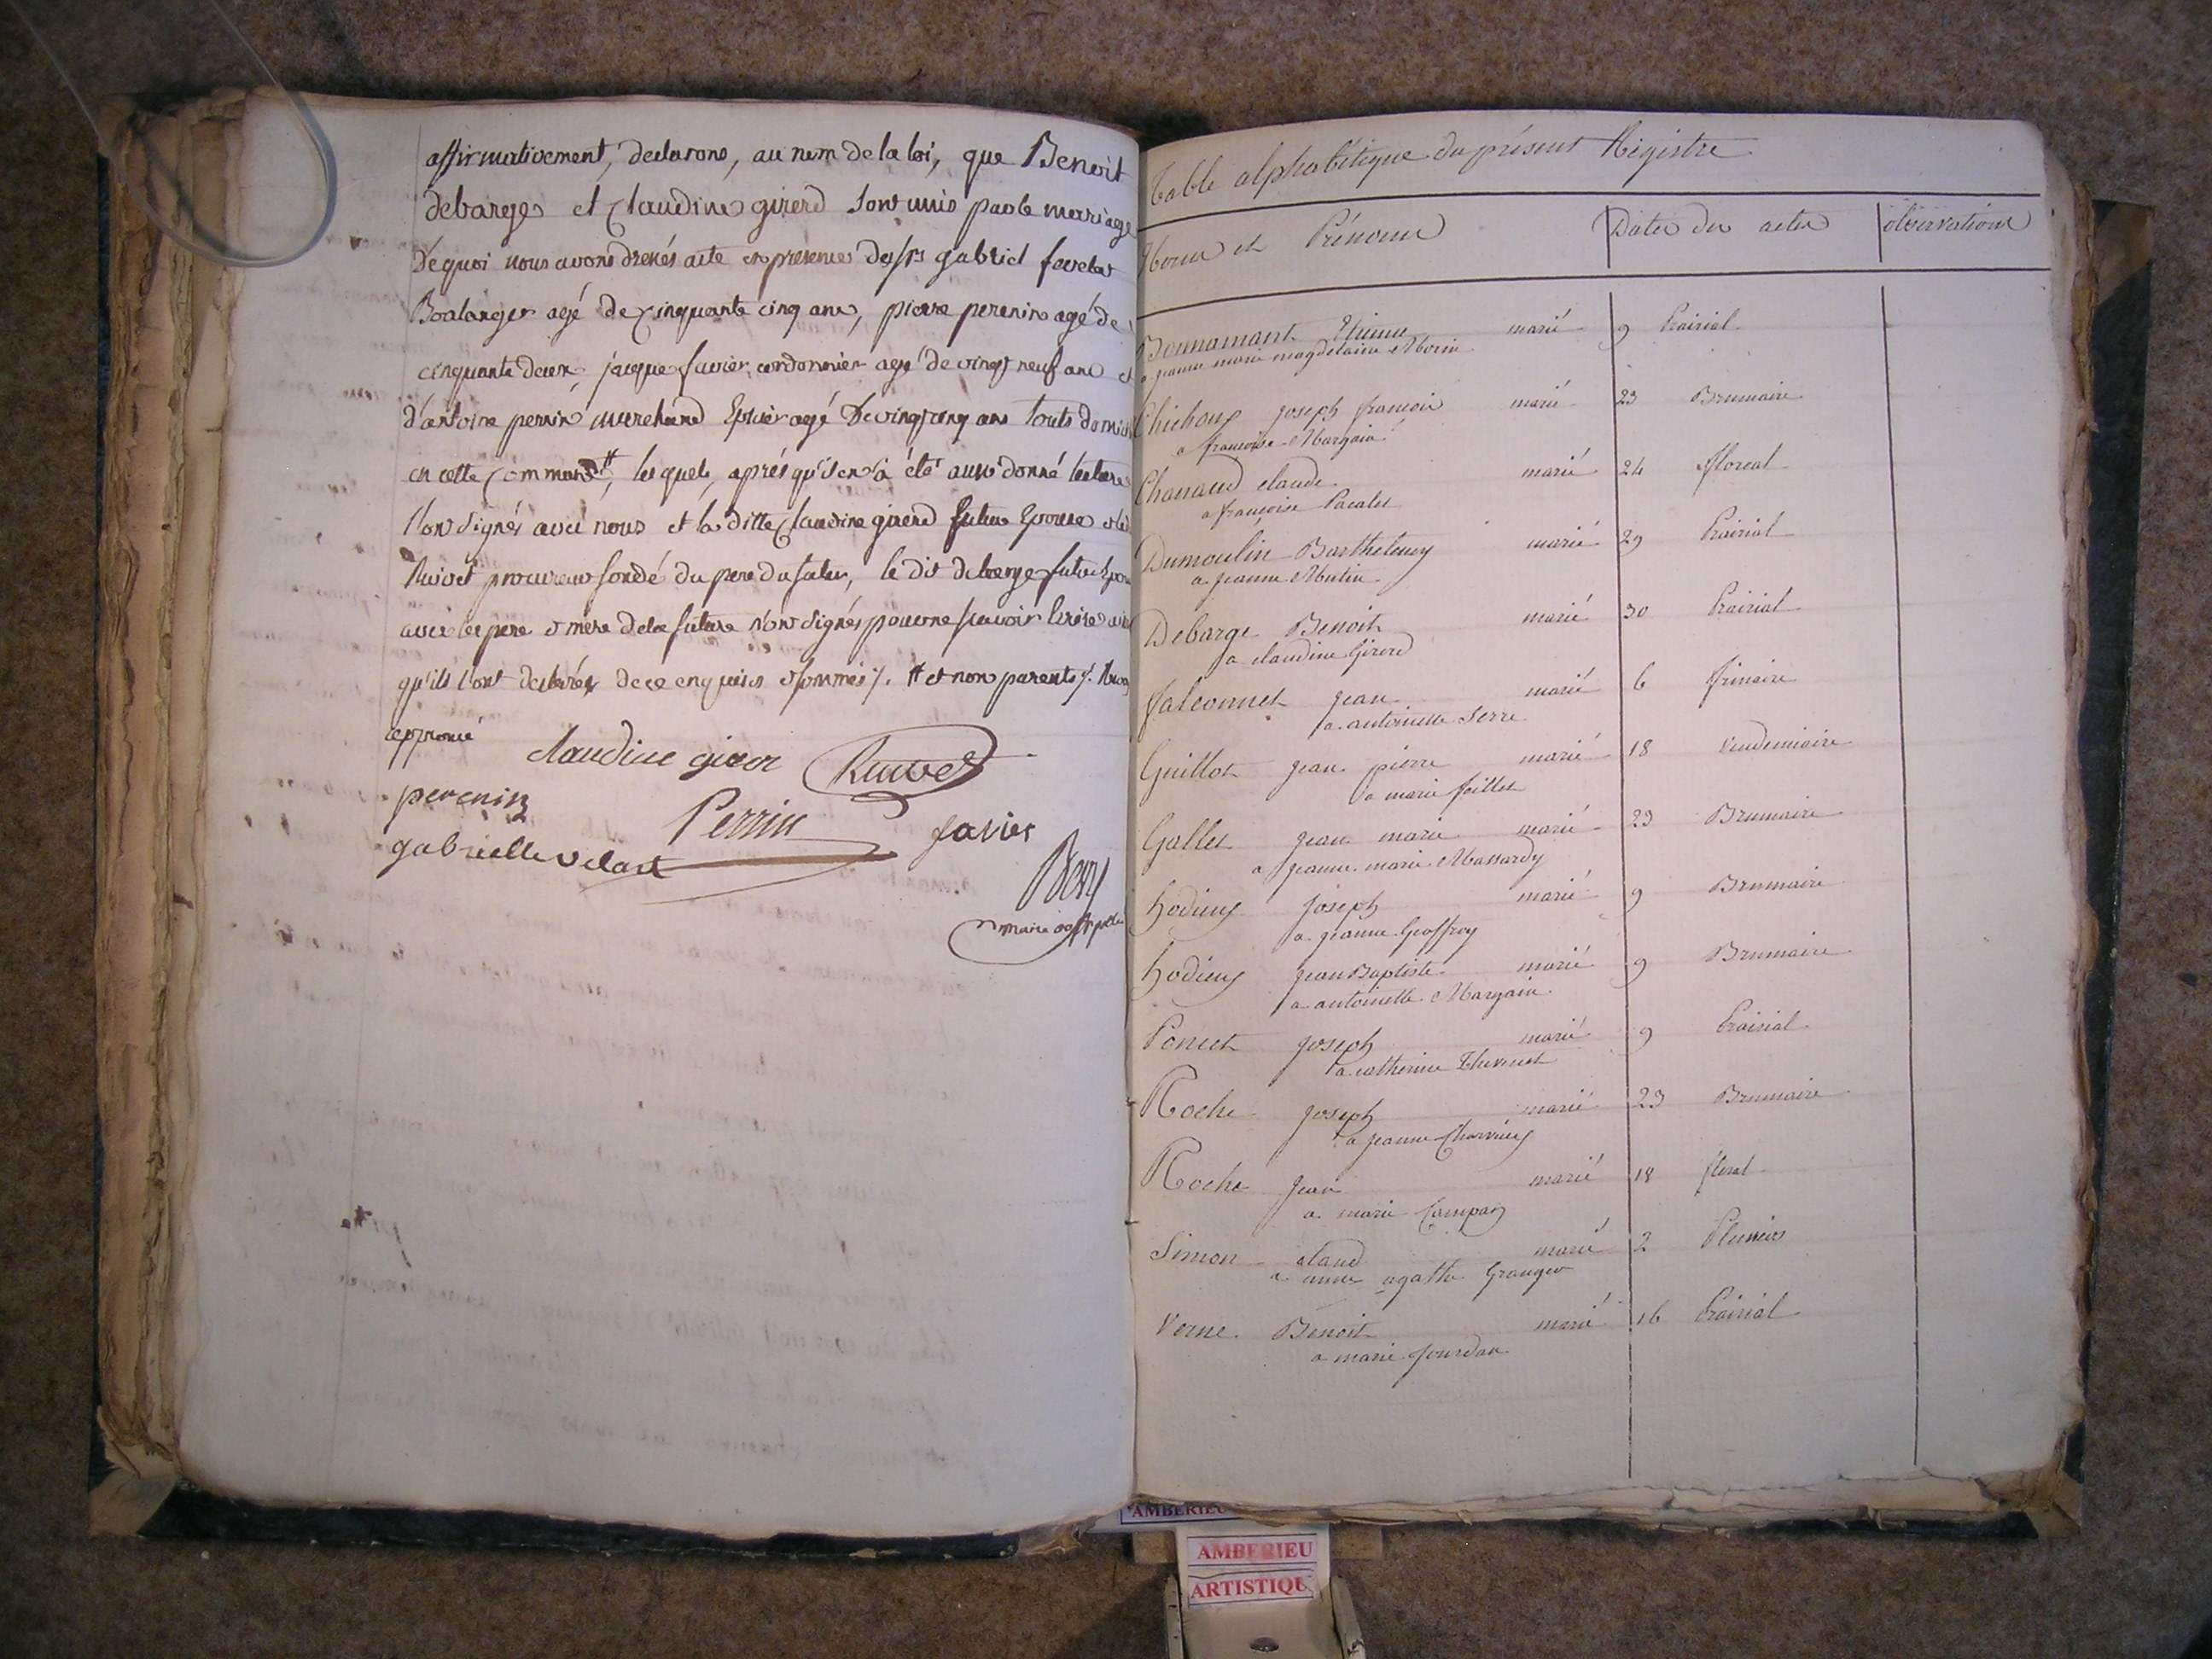 affirmativement, declarons, au nom de la loi, que Benoit
debarge et Claudine girerd sont unis par le mariage
De quoi nous avons dressés acte en presence des srs gabriel
Boalanger agé de Cinquante cinq ans, pierre perenin agé de
cinquante deux, jacque favier cordonnier agé de vingt neuf ans et
d'antoine perrin marchand Epicier agé de vingt cinq ans touts
en cette Commune, lesquels, aprés qu'il en a été aussi donné lecture
l'ont signés avec nous et la ditte Claudine girerd future Epouse
Ruivet procureur fondé du pere du futur, le dit debarge futur
avec les pere et mere de la future n'ont signés pour ne scavoir Ecrire
qu'ils l'ont declarés de ce enquis et sommés ./. # et non parents ./.
approuvé
claudine giror Ruivet
perenin Perrin favier
gabrielle velard
Bery
maire
Table alphabétique du présent Régistre
Noms et Prénoms Dates des actes observations
Bonnamant Etienne marié 9 Prairial
a jeanne marie magdelaine Morin
Chichoux joseph francois marié 23 Brumaire
a françoise Margain
Chanaud claude marié 24 floreal
a françoise Pacalet
Dumoulin Barthelemy marié 29 Prairial
a jeanne Mutin
Debarge Benoit marié 30 Prairial
a claudine Girerd
falconnet jean marié 6 frimaire
a antoinette Serre
Guillot jean pierre marié 18 Vendemiaire
a marie foillet
Gallet jean marie marié 23 Brumaire
a jeanne marie Massardy
hodieux joseph marié 9 Brumaire
a jeanne Geoffroy
hodieux jean Baptiste marié 9 Brumaire
a antoinette Margain
Poncet joseph marié 9 Prairial
a catherine Thevenet
Roche joseph marié 23 Brumaire
a jeanne Charvieux
Roche jean marié 18 floreal
a marie
Simon claud marié 2 Pluvios
a anne agathe Granger
Verne Benoit marié 16 Prairial
a marie jourdan
AMBERIEU
AMBERIEU
ARTISTIQU